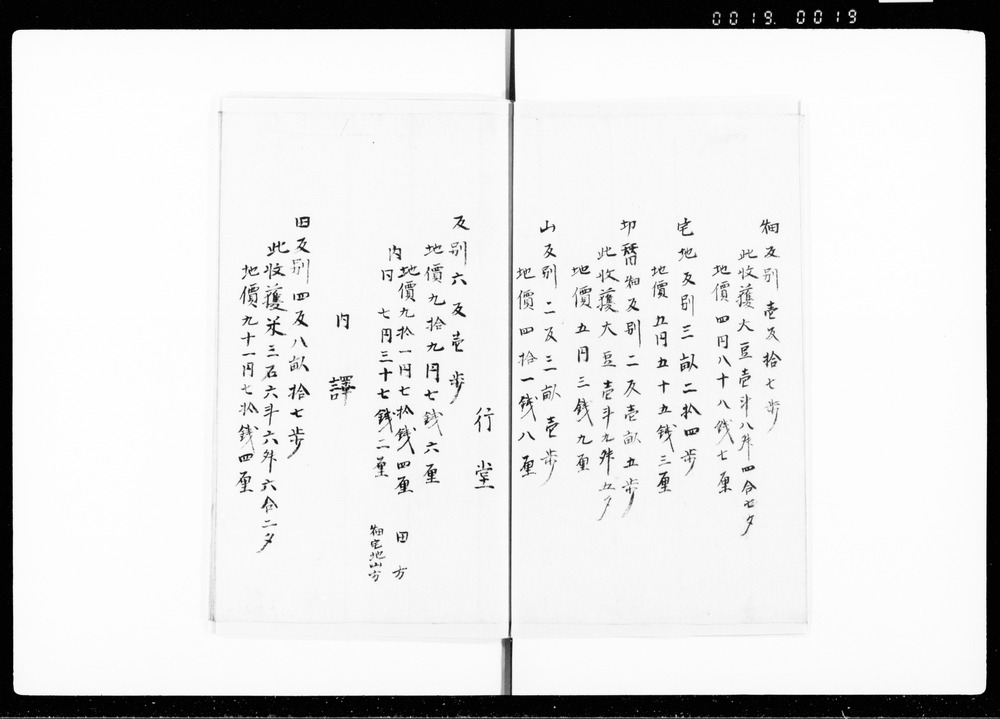 0019. 0019
畑反別壱反拾七歩
此收獲大豆壱斗八舛四合七夕
地價四円八十八銭七厘
宅地反別三畝二拾四歩
地價五円五十五銭三厘
切替畑反別二反壱畝五歩
此收獲大豆壱斗九舛五夕
地價五円三銭九厘
山反別二反三畝壱歩
地價四拾一銭八厘
行堂
反別六反壱歩
地價九拾九円七銭六厘
内地價九拾一円七拾銭四厘 田方
内円七円三十七銭二厘 畑宅地山方
内譯
田反別四反八畝拾七歩
此收獲米三石六斗六舛六合二夕
地價九十一円七拾銭四厘